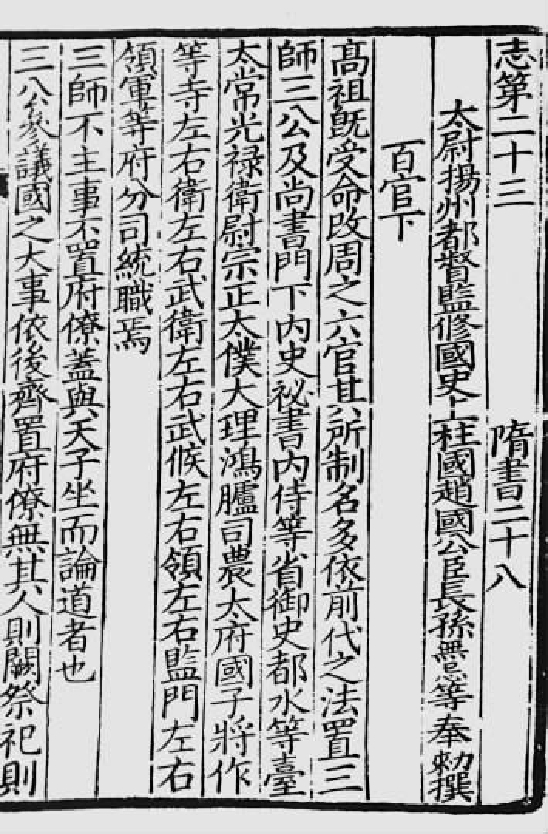 志第二十三　隋書二十八
太尉揚州都督監修國史上柱國趙國公臣長孫無忌等奉勑撰
百官下
髙祖旣受命改周之六官其所制名多依前代之法置三
師三公及尚書門下內史祕書內侍等省御史都水等臺
太常光禄衛尉宗正太僕大理鴻臚司農太府國子將作
等寺左右衛左右武衛左右武候左右領左右監門左右
領軍等府分司統職焉
三師不主事不置府僚蓋與天子坐而論道者也
三公參議國之大事依後齊置府僚無其人則闕祭祀則